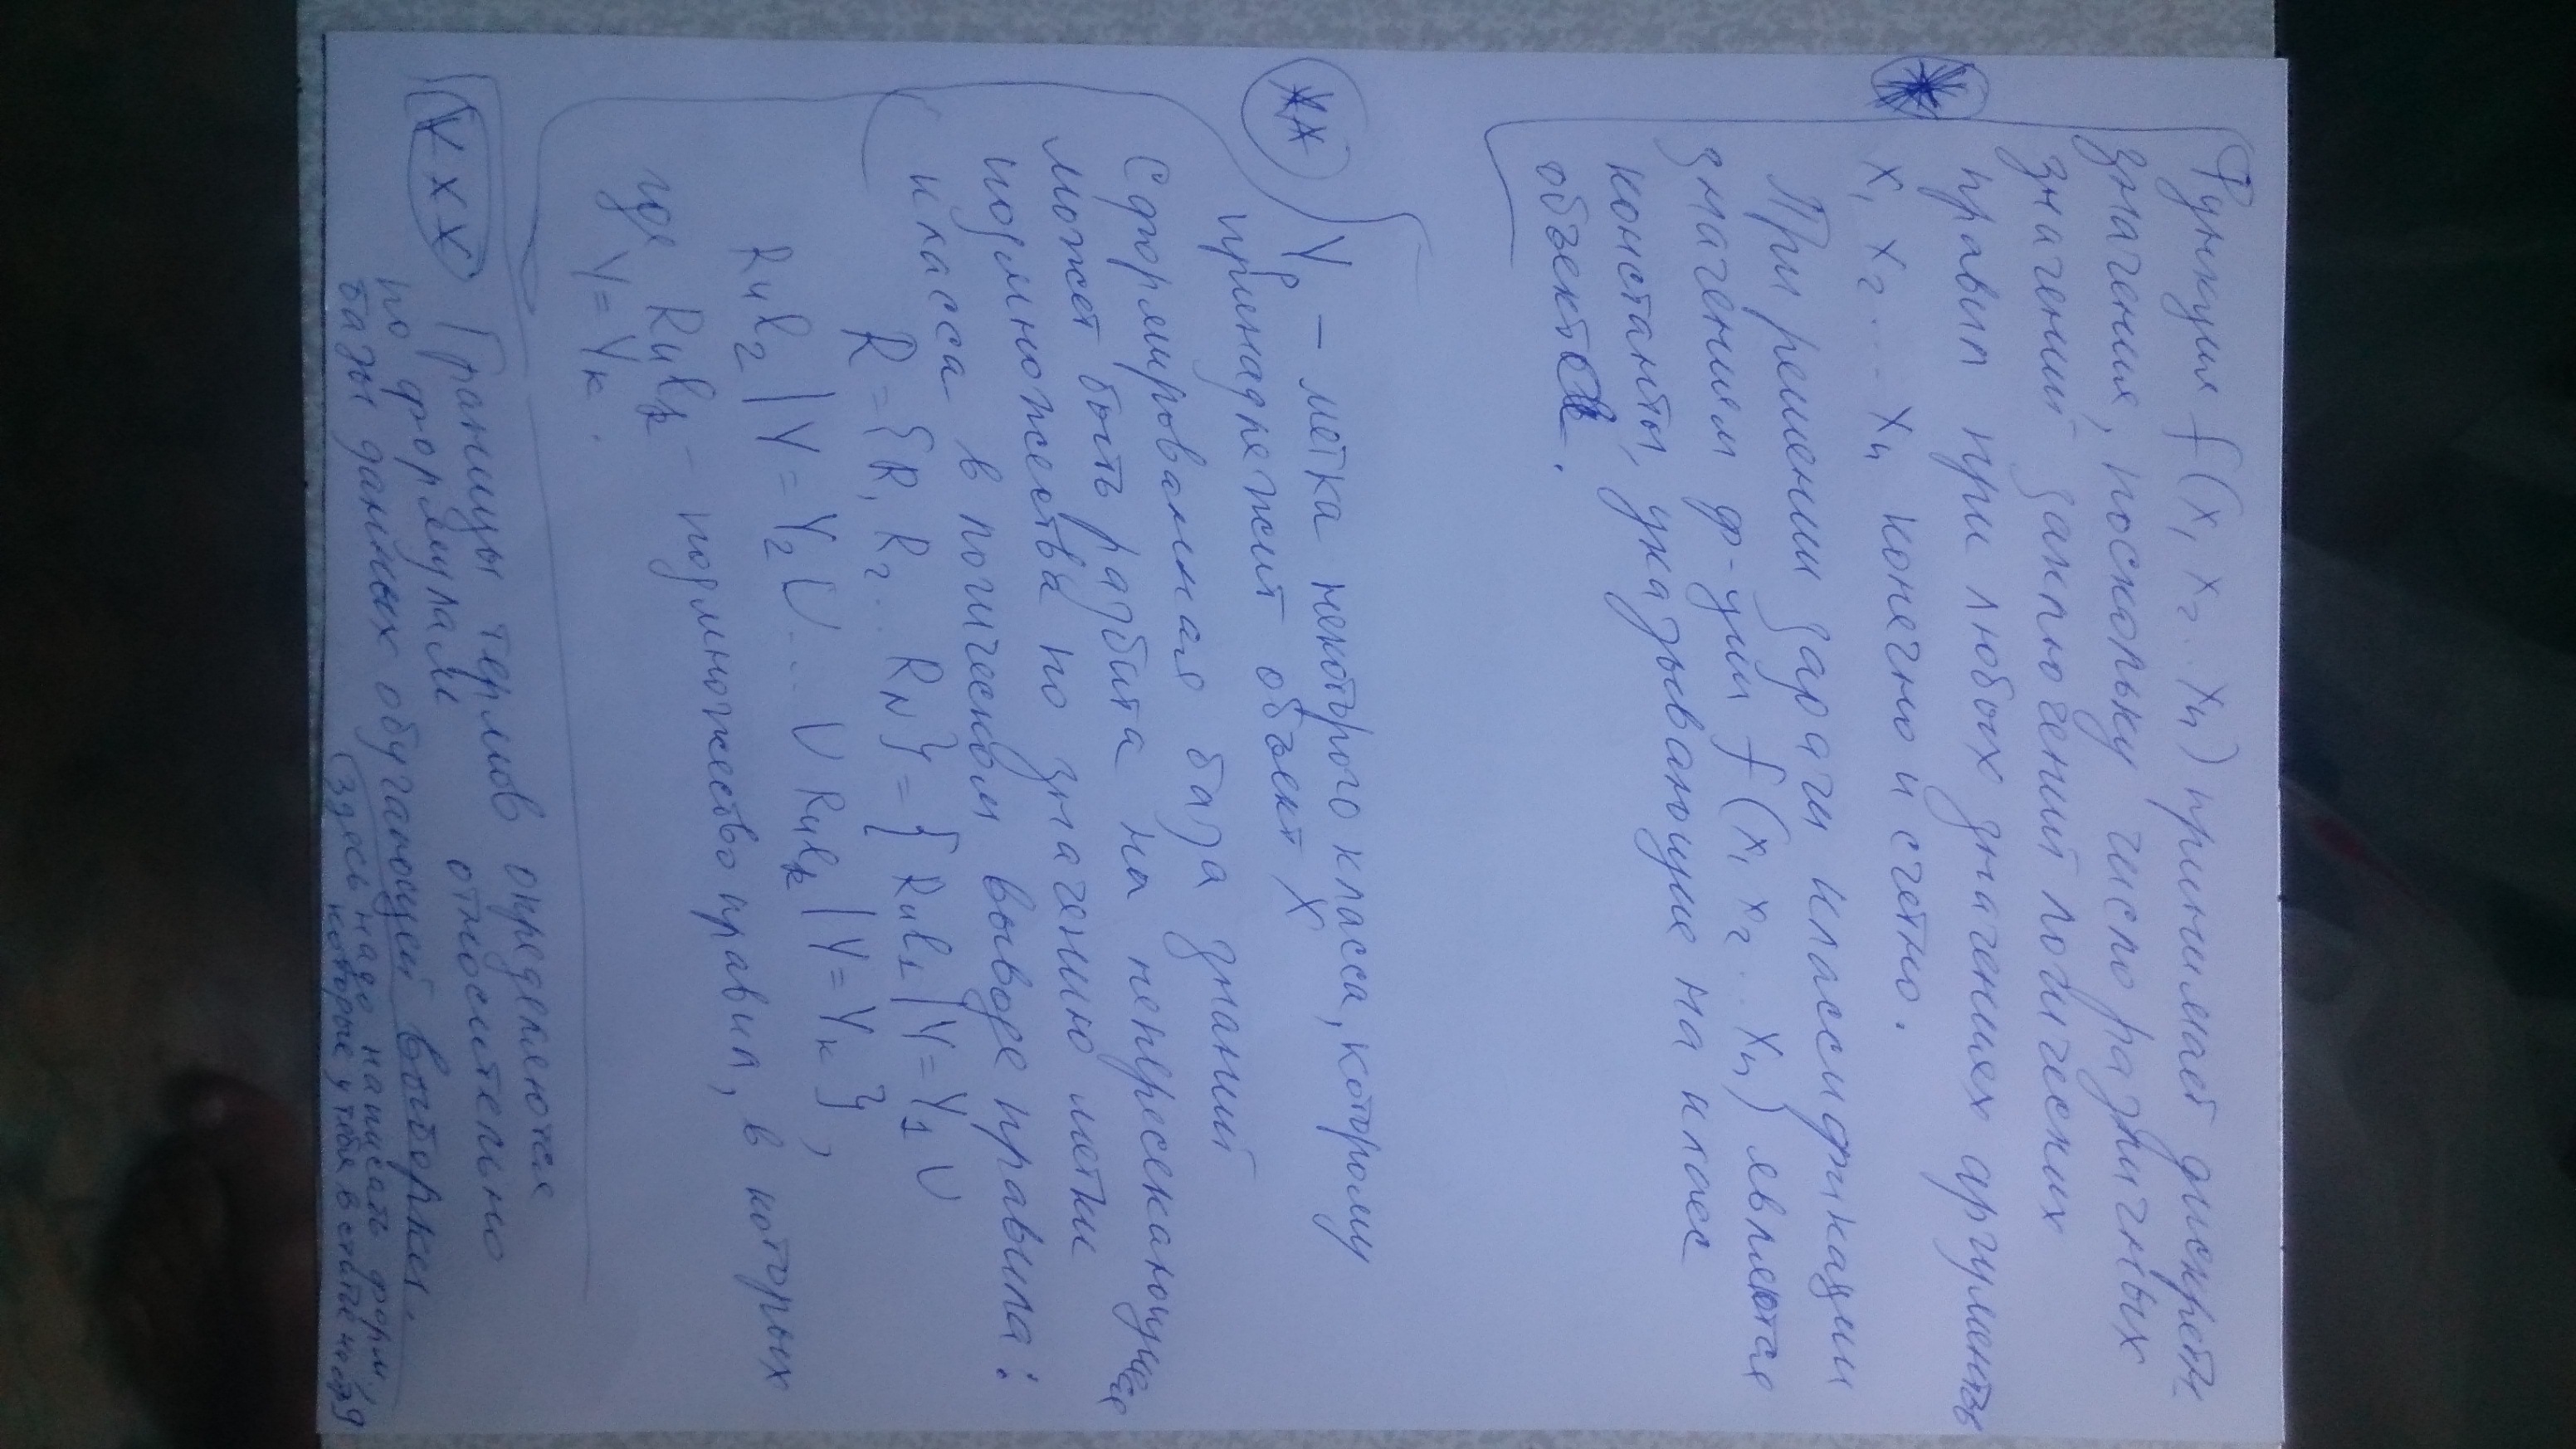 Функция f(x₁ x₂.. xₙ) принимает дискретн.
значения, поскольку число различных
значений заключений логических
правил при любых значениях аргументов
x₁ x₂ ... xₙ конечно и счетно.
*
При решении задачи классификации
значением ф-ции f(x₁ x₂.. xₙ) являются
константы, указывающие на класс
объектов.
**
Yₚ – метка некоторого класса, которому
принадлежит объект X
Сформированная база знаний
может быть разбита на непересекающиеся
подмножества по значению метки
класса в логическом выводе правила:
R = {R₁ R₂.. R_N} = { Rul₁ | Y = Y₁ ∪
Rul₂ | Y = Y₂ ∪ ... ∪ Rulₖ | Y = Yₖ },
где Rulₖ – подмножество правил, в которых
Y = Yₖ.
VXX
Границы термов определяются
по формулам относительно
базы данных обучающей выборки.
(здесь надо написать форм,
которые у тебя в статье